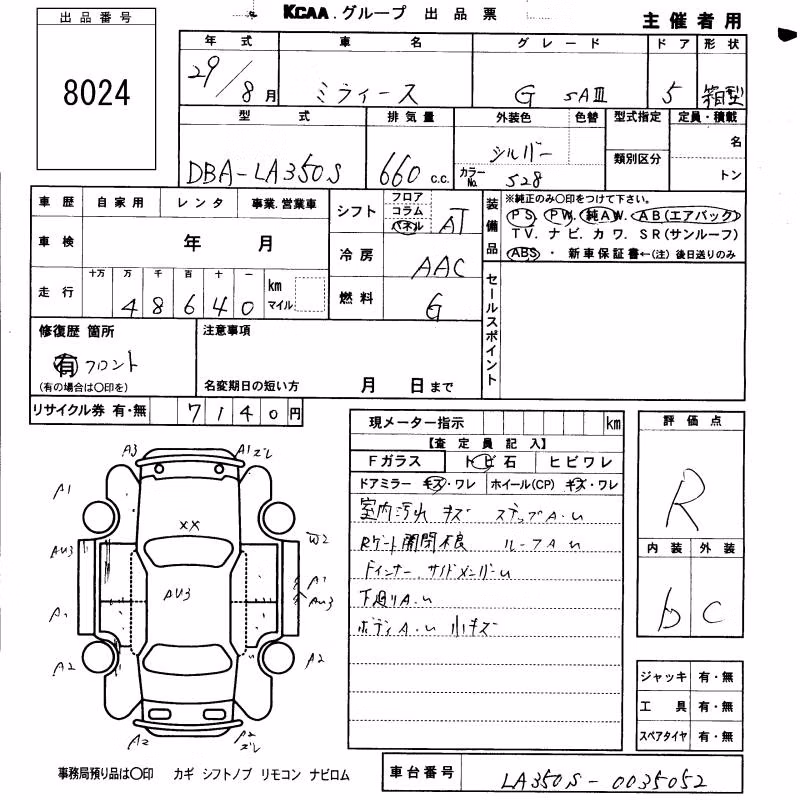 出品番号
8024
KCAA.グループ 出品票
主催者用
年式 車名 グレード ドア 形状
29/8月 ミライース G SAⅢ 5 箱型
型式 排気量 外装色 色替 型式指定 定員・積載
DBA-LA350S 660 c.c. シルバー 類別区分 名
カラーNo. 528 トン
車歴 自家用 レンタ 事業.営業車
車検 年 月
走行 十万 万 千 百 十 一 km マイル
4 8 6 4 0
シフト フロア コラム パネル AT
冷房 AAC
燃料 G
装備品 ※純正のみ〇印をつけて下さい。
PS. PW. 純AW. AB(エアバック)
TV. ナビ. カワ. SR(サンルーフ)
ABS ・ 新車保証書←(注)後日送りのみ
セールスポイント
修復歴 箇所
有 フロント
(有の場合は〇印を)
注意事項
名変期日の短い方 月 日まで
リサイクル券 有・無 7140円
現メーター指示 km
【査定員記入】
Fガラス トビ石 ヒビワレ
ドアミラー キズ・ワレ ホイール(CP) キズ・ワレ
室内汚れ キズ ステップA.U
Rゲート開閉不良 ルーフAU
Fインナー.サイドメンバーU
下廻りA.U
ボディA.U 小キズ
評価点
R
内装 外装
b C
ジャッキ 有・無
工具 有・無
スペアタイヤ 有・無
A3 A1ズレ
A1
XX
AU3 W2
AU3 A1
AU3
A1
A2 A2
A2 A2
ズレ
事務局預り品は〇印 カギ シフトノブ リモコン ナビロム
車台番号 LA350S-0035052